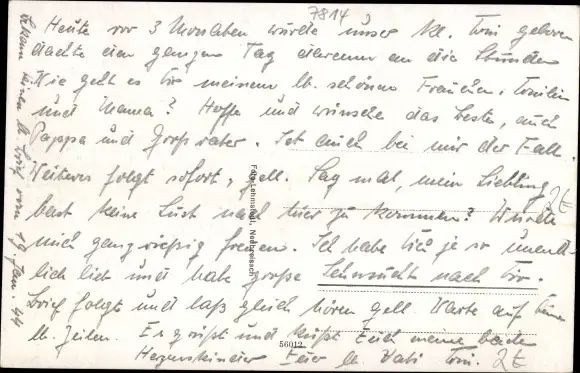 7814
Heute vor 3 Monaten wurde unser kl. Toni geboren
dachte den ganzen Tag daran an die Stunden
Wie geht es Dir meinem lb. schönen Frauchen, Tonilin
und Mama? Hoffe und wünsche das beste, auch
Pappa und Großvater. Ist auch bei mir der Fall.
Weiteres folgt sofort, gell. Sag mal, mein Liebling,
hast keine Lust nach hier zu kommen? Würde
mich ganz riesig freuen. Ich habe Dich ja so unend-
lich lieb und habe große Sehnsucht nach Dir.
Brief folgt und laß gleich hören gell. Warte auf Deine
lb. Zeilen. Es grüßt und küßt Euch meine beiden
Herzenskinder Euer lb. Vati Toni.
Bekam Deinen lb. Brief vom 19. Jan. 44
Foto Lehnstedt,
56012